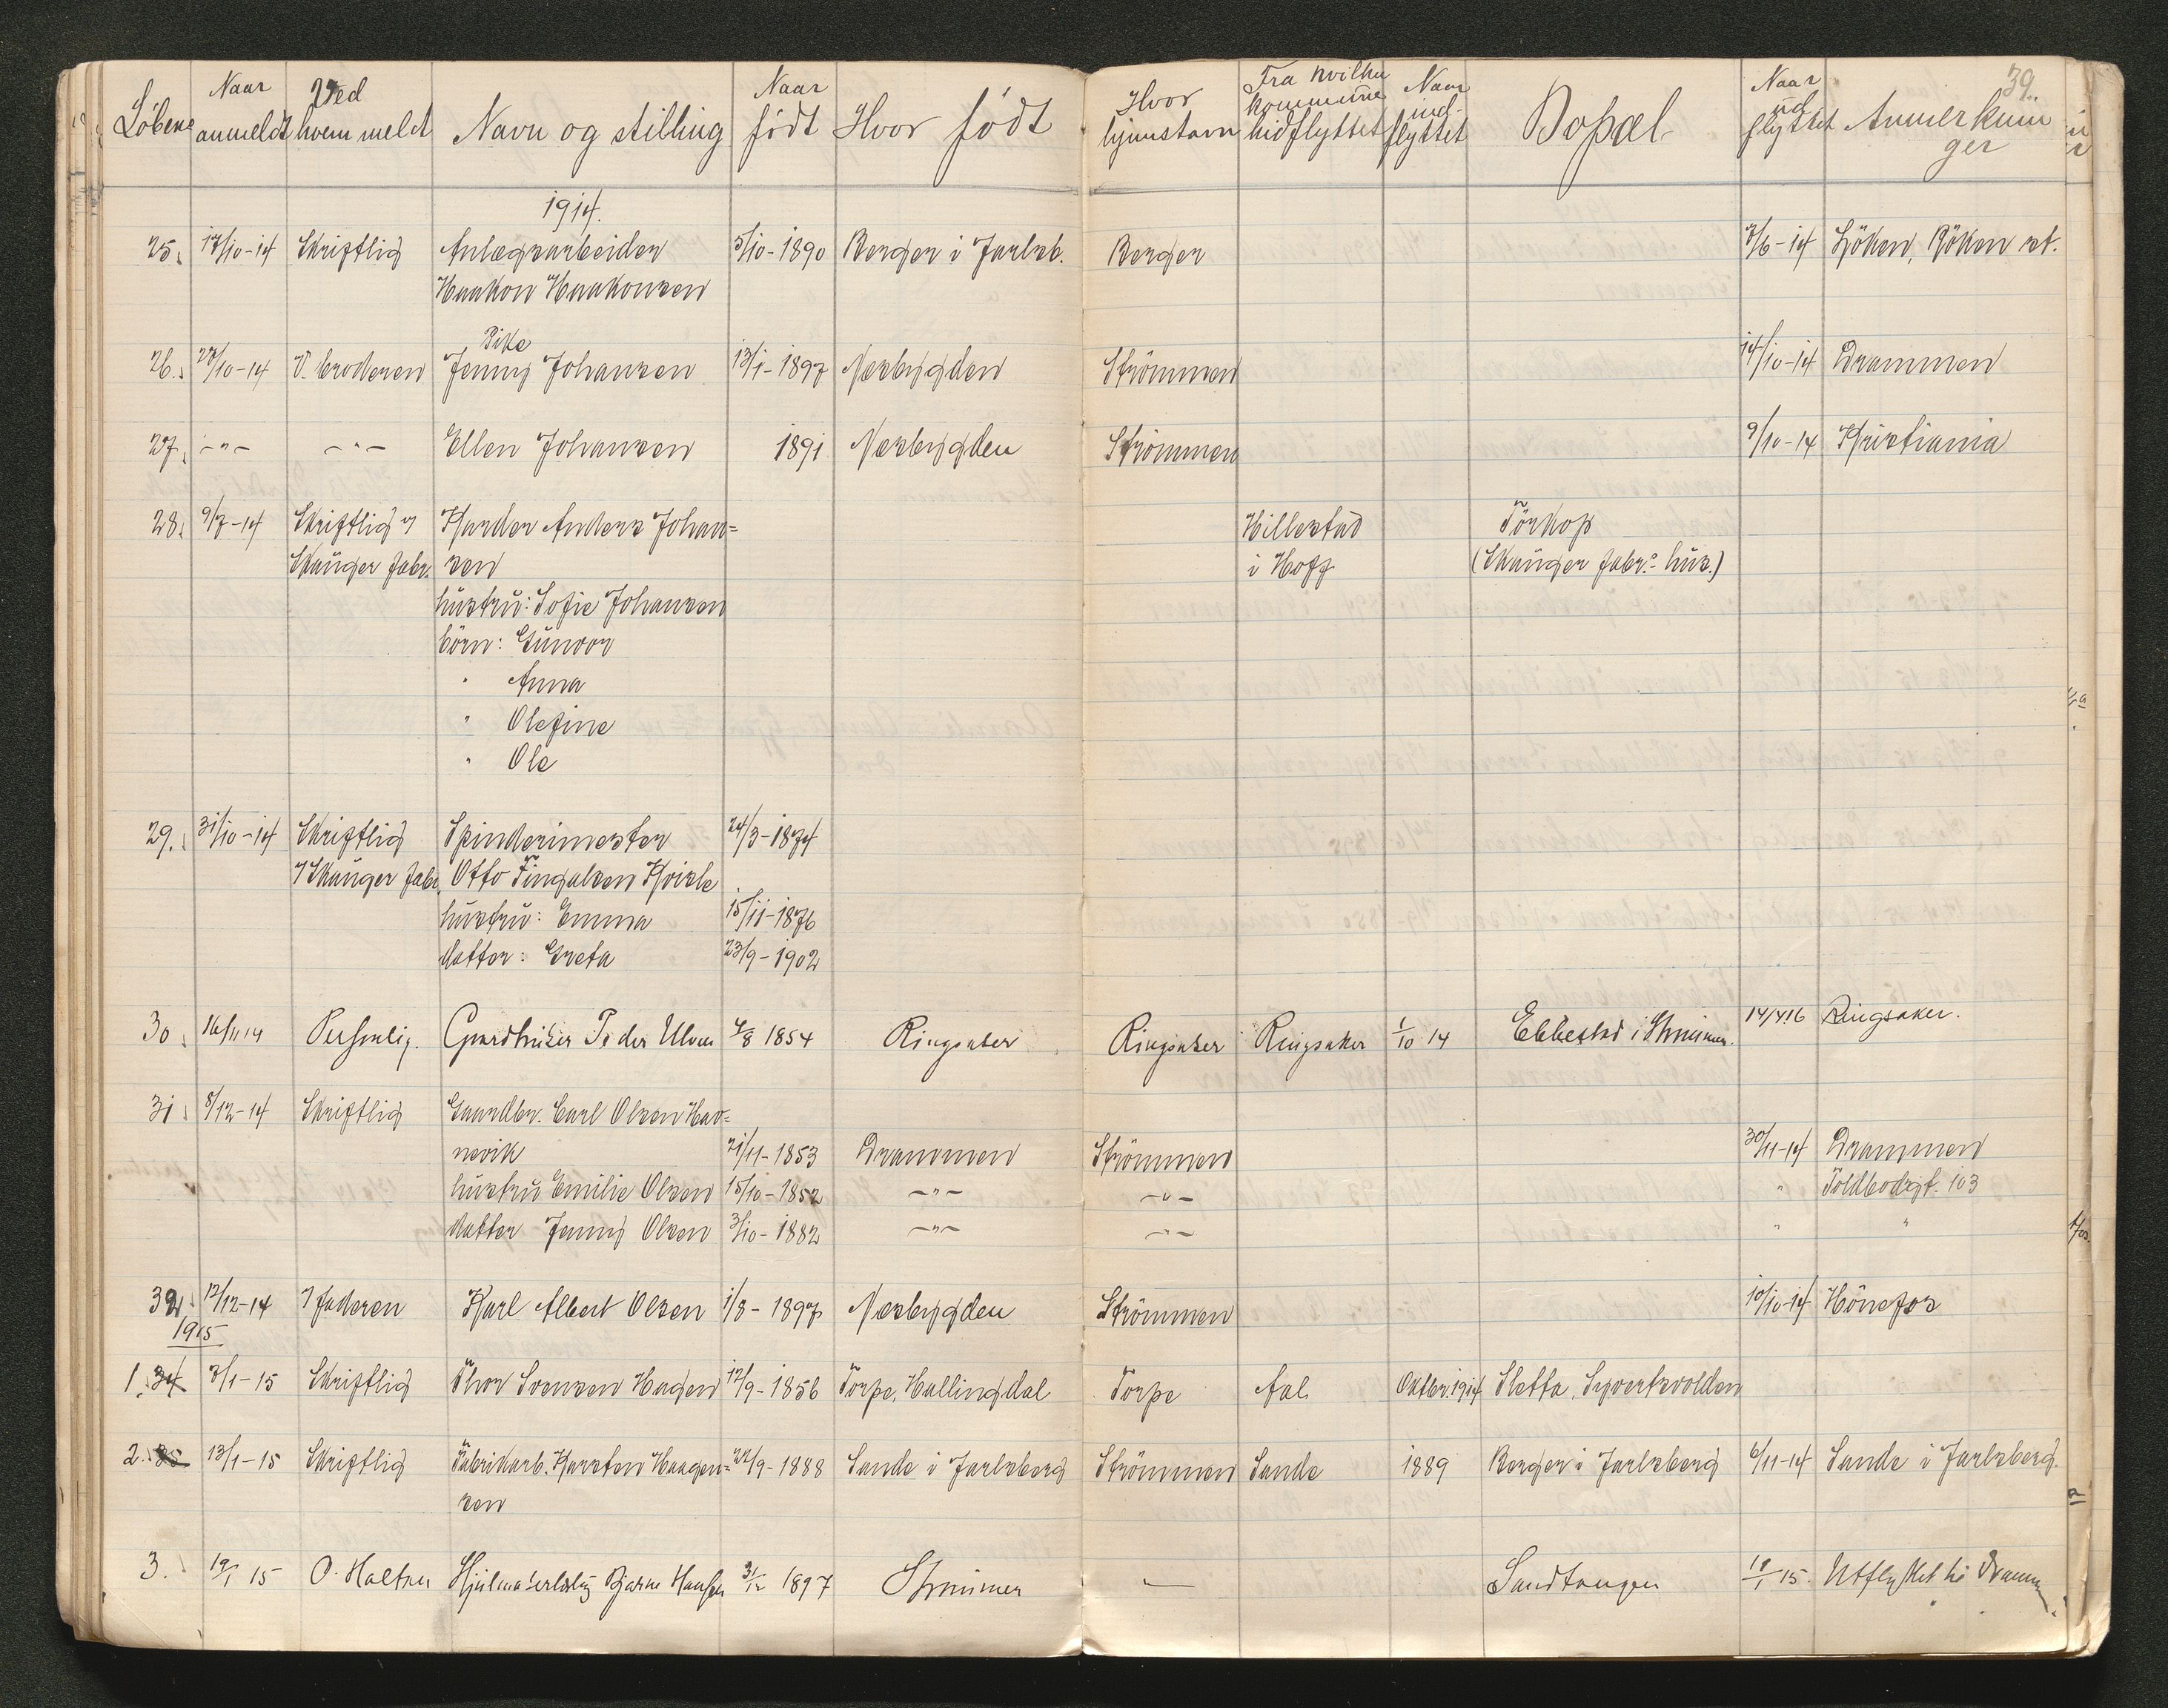 39.
Löbene Naar anmeldt Ved hvem meldt Navn og stilling Naar født Hvor født Hvor hjemstavn Fra hvilken kommune hidflyttet Naar indflyttet Bopæl Naar udflyttet Anmerkninger
1914.
25. 17/10-14 Skriftlig Anlægsarbeider 5/10-1890 Berger i Jarlsb. Berger 7/6-14 Höken, Röken st.
Haakon Haakonsen
Pike
26. 27/10-14 V. broderen Jenny Johansen 13/1-1897 Nesbygden Strömmen 14/10-14 Drammen
27. -"- -"- Ellen Johansen 1891 Nesbygden Strömmen 9/10-14 Kristiania
28. 9/7-14 Skriftlig v Karder Anders Johan= Hillestad Törkop
Skauger fabr. sen i Hoff (Skauger fabr.s hus.)
hustru: Sofie Johansen
börn: Gunvor
" Anna
" Olefine
" Ole
29. 31/10-14 Skriftlig Spinderimester 24/3-1874
v Skauger fabr. Otto Fingalsen Kvisle
hustru: Emma 15/11-1876
datter: Greta 23/9-1902
30. 16/11 14 Personlig. Gaardbruker Peder Ulven 4/8 1854 Ringsaker Ringsaker Ringsaker 1/10 14 Ebbestad i Strømmen. 14/4 16 Ringsaker.
31. 8/12-14 Skriftlig Gaardbr. Carl Olsen Hav=
nevik 21/11-1853 Drammen Strömmen 30/11-14 Drammen
hustru Emilie Olsen 15/10-1852 -"- -"- " Toldbodgt. 103
datter Jenny Olsen 3/10-1882 -"- -"- " "
32. 12/12-14 v faderen Karl Albert Olsen 1/8-1897 Nesbygden Strömmen 10/10-14 Hönefos
1915
1. 34 3/1-15 Skriftlig Thor Svensen Hagen 12/9-1856 Torpe, Hallingdal Torpe Aal Oktbr. 1914 Sletta, Syvertsvolden
2. 35 13/1-15 Skriftlig Fabrikarb. Karsten Haagen= 22/9-1888 Sande i Jarlsberg Strömmen Sande 1889 Berger i Jarlsberg 6/11-14 Sande i Jarlsberg.
sen
3. 19/1 15 O. Holtsen Hjulmakerlærling Bjarne Hansen 31/12 1897 Strømmen — Sandtangen 18/1-15. Utflyttet til Drammen